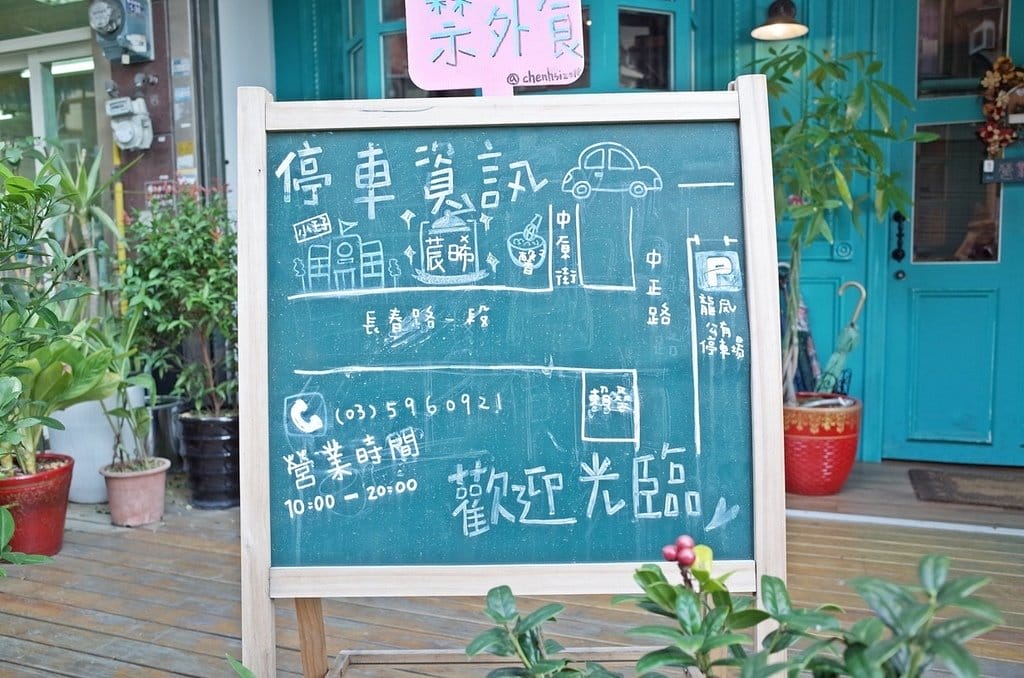 禁外食
@chenhsi
停車資訊
莀晞
中原街
中正路
P
龍鳳
公有
停車場
長春路一段
(03)5960921
營業時間
10:00-20:00
歡迎光臨